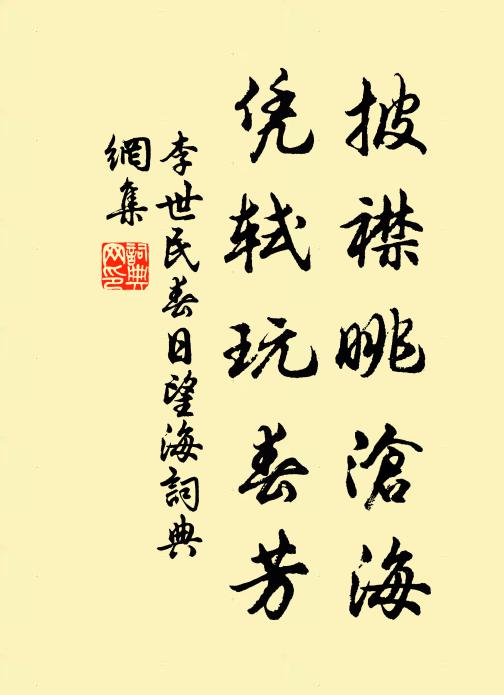 披襟眺滄海
凭轼玩春芳
李世民春日望海詞典
網集
詞典
网印